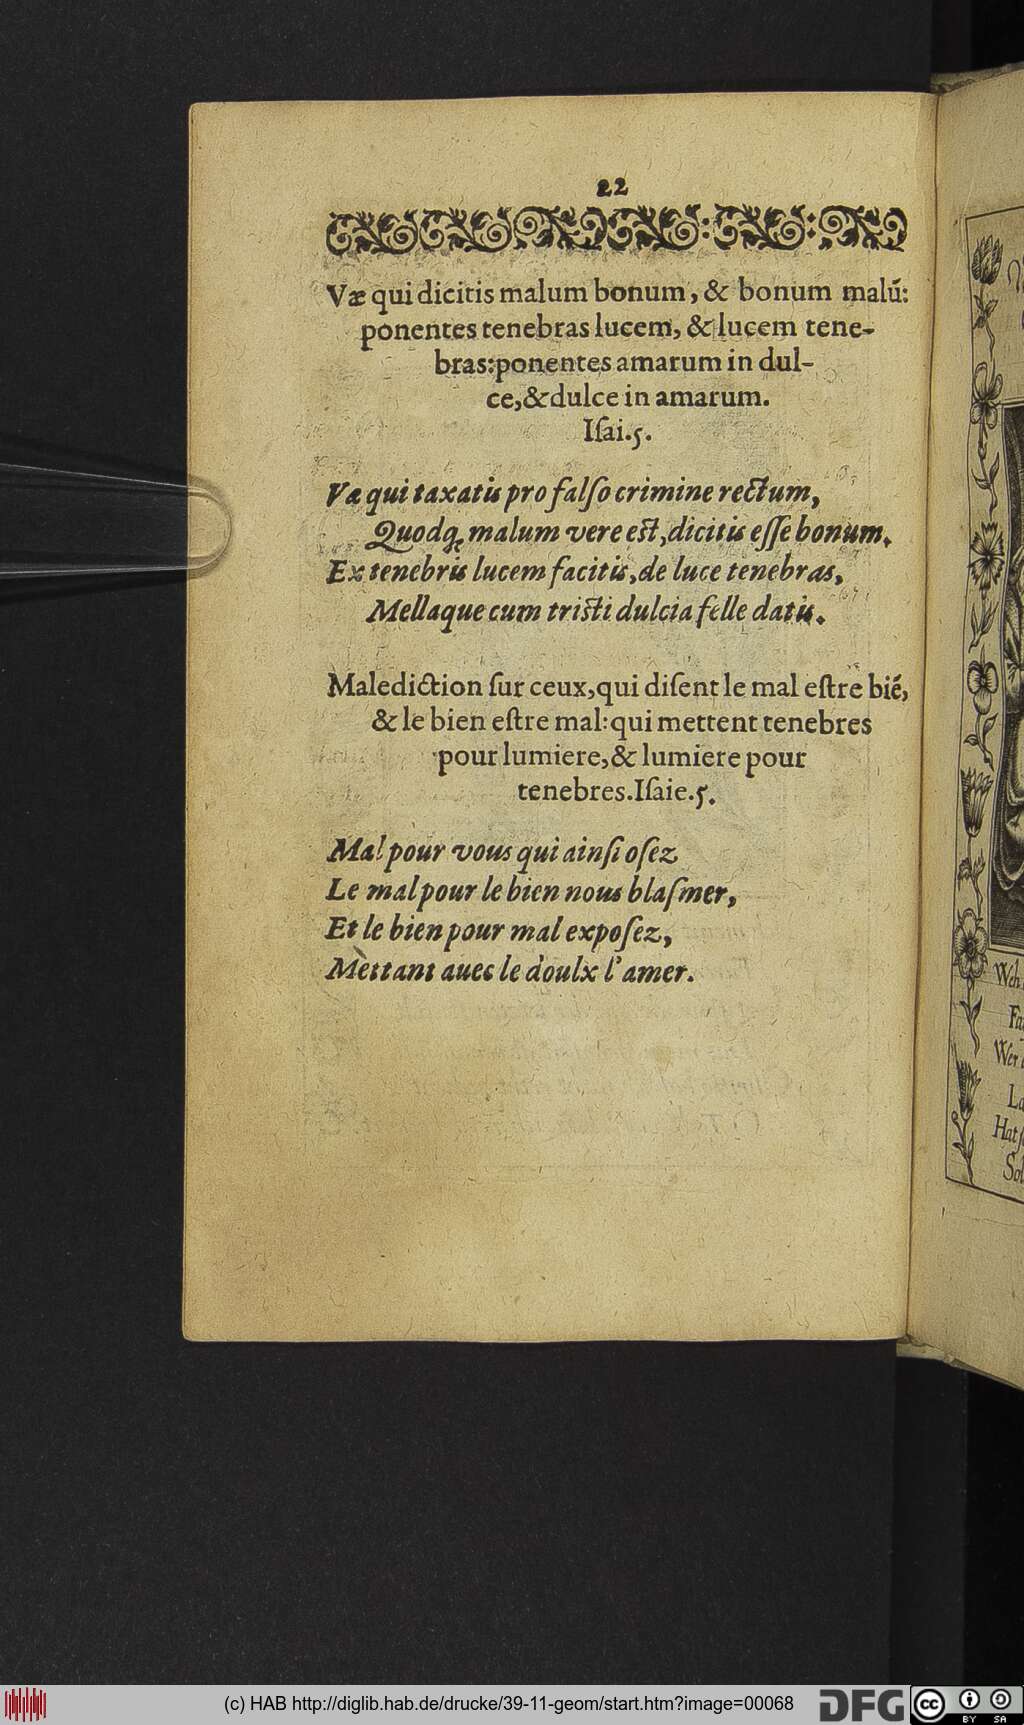 22
Væ qui dicitis malum bonum, & bonum malũ:
ponentes tenebras lucem, & lucem tene-
bras: ponentes amarum in dul-
ce, & dulce in amarum.
Iſai.5.
Væ qui taxatis pro falſo crimine rectum,
Quodq́ue malum vere est, dicitis eſſe bonum.
Ex tenebris lucem facitis, de luce tenebras,
Mellaque cum tristi dulcia felle datis.
Malediction ſur ceux, qui diſent le mal eſtre biẽ,
& le bien eſtre mal: qui mettent tenebres
pour lumiere, & lumiere pour
tenebres. Iſaie.5.
Mal pour vous qui ainſi oſez
Le mal pour le bien nous blaſmer,
Et le bien pour mal expoſez,
Mettant auec le doulx l'amer.
Weh
Wer
Hat
(c) HAB http://diglib.hab.de/drucke/39-11-geom/start.htm?image=00068
DFG
cc
BY SA